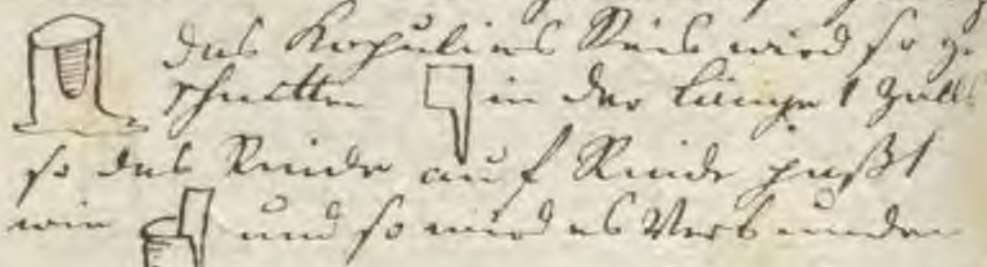 das Kopulirs Reis wird so ge
schnitten in der Länge 1 Zoll
so das Rinde auf Rinde paßt
wie und so wird es Verbunden